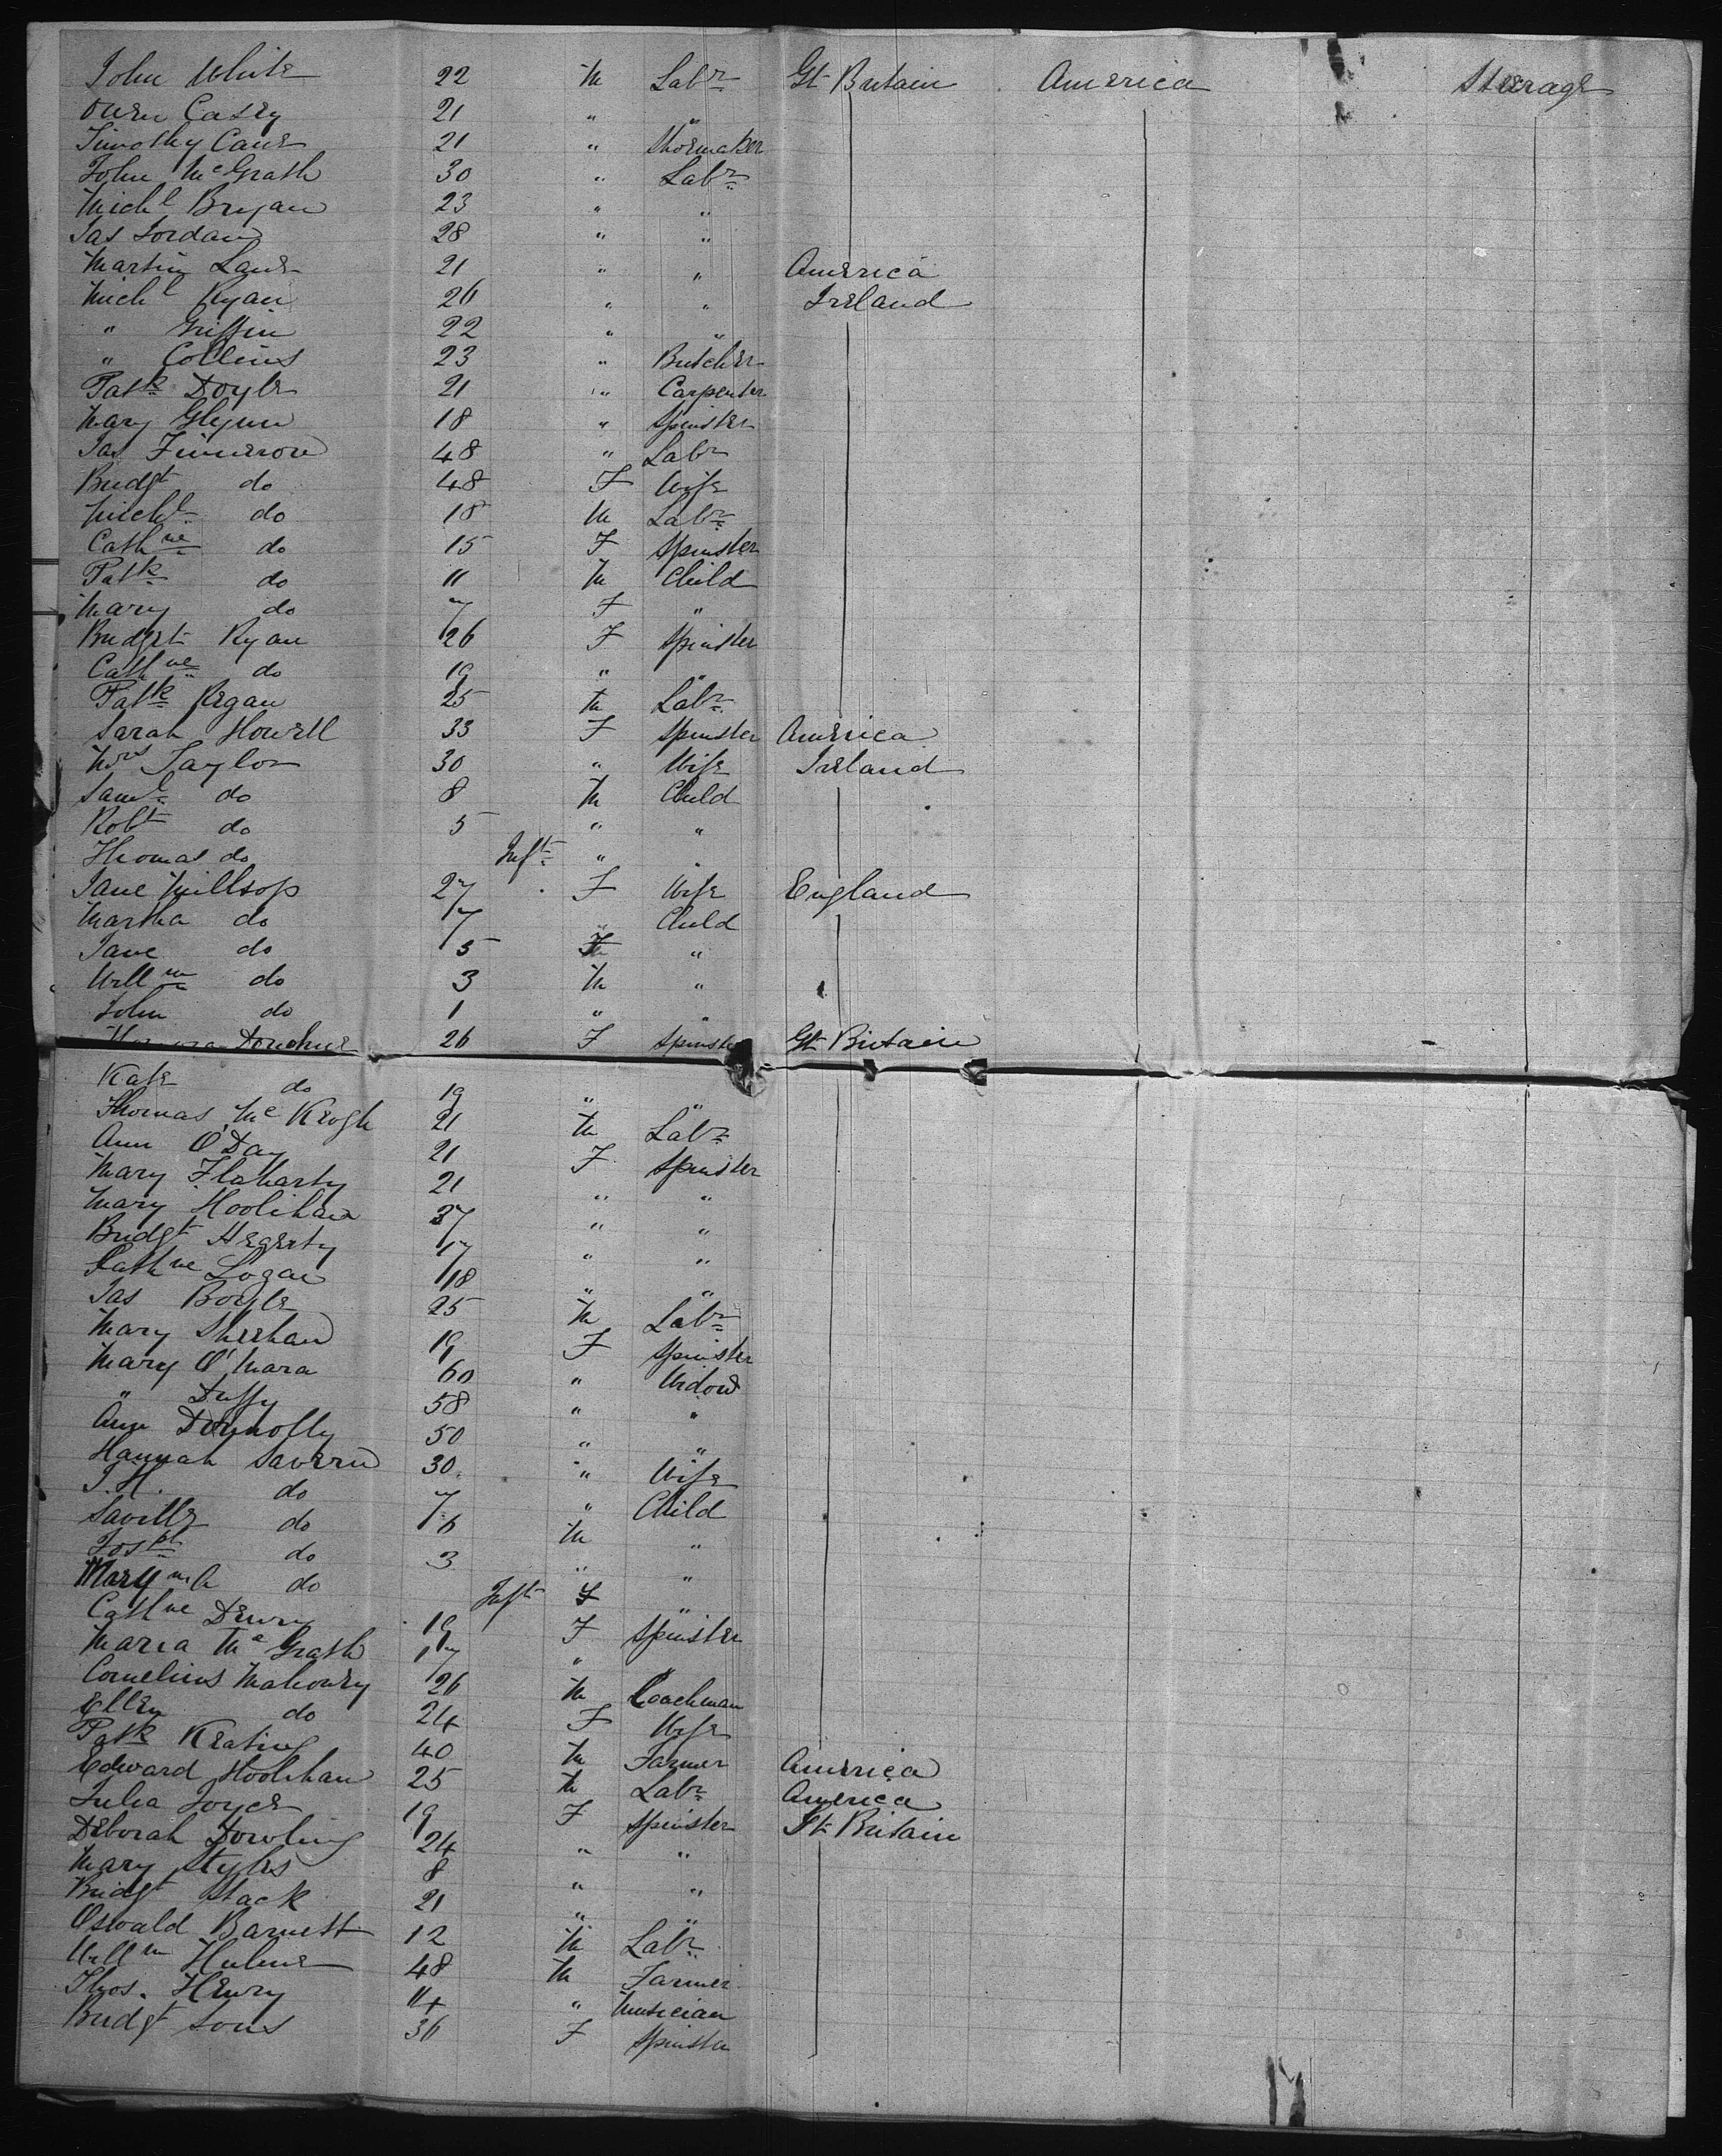 John White 22 M Labr Gt Britain America Steerage
Owen Casey 21 " "
Timothy Cane 21 " Shoemaker
John McGrath 30 " Labr
Michl Bryan 23 " "
Jas Jordan 28 " "
Martin Lane 21 " " America
Michl Ryan 26 " " Ireland
" Griffin 22 " "
" Collins 23 " Butcher
Patk Doyle 21 " Carpenter
Mary Glynn 18 " Spinster
Jas Finneron 48 " Labr
Bridgt do 48 F Wife
Michl do 18 M Labr
Cathne do 15 F Spinster
Patk do 11 M Child
Mary do 7 F "
Bridget Ryan 26 F Spinster
Cathne do 19 " "
Patk Regan 25 M Labr
Sarah Howell 33 F Spinster America
Mrs Taylor 30 " Wife Ireland
Saml do 8 M Child
Robt do 5 " "
Thomas do Inft " "
Jane Millsop 27 F Wife England
Martha do 7 " Child
Jane do 5 F "
Willm do 3 M "
John do 1 " "
Honora Donohue 26 F Spinster Gt Britain
Kate do 19 " "
Thomas McKeogh 21 M Labr
Ann O'Day 21 F Spinster
Mary Flaharty 21 " "
Mary Hoolihan 37 " "
Bridgt Hegerty 17 " "
Cathne Logan 18 " "
Jas Boyle 25 M Labr
Mary Sheehan 19 F Spinster
Mary O'Mara 60 " Widow
" Duffy 58 " "
Ann Donnolly 50 " "
Hannah Savern 30 " Wife
J.H. do 7 " Child
Saville do 6 M "
Josph do 3 " "
Mary do Inft F "
Cathne Dewry 19 F Spinster
Maria McGrath 17 " "
Cornelius Mahoney 26 M Coachman
Ellen do 24 F Wife
Patk Keating 40 M Farmer America
Edward Hoolihan 25 M Labr America
Julia Joyce 19 F Spinster Gt Britain
Deborah Dowling 24 " "
Mary Styles 8 " "
Bridgt Stack 21 " "
Oswald Barnett 12 M Labr
Willm Hulme 48 M Farmer
Thos. Henry 14 " Musician
Bridgt Sons 36 F Spinster